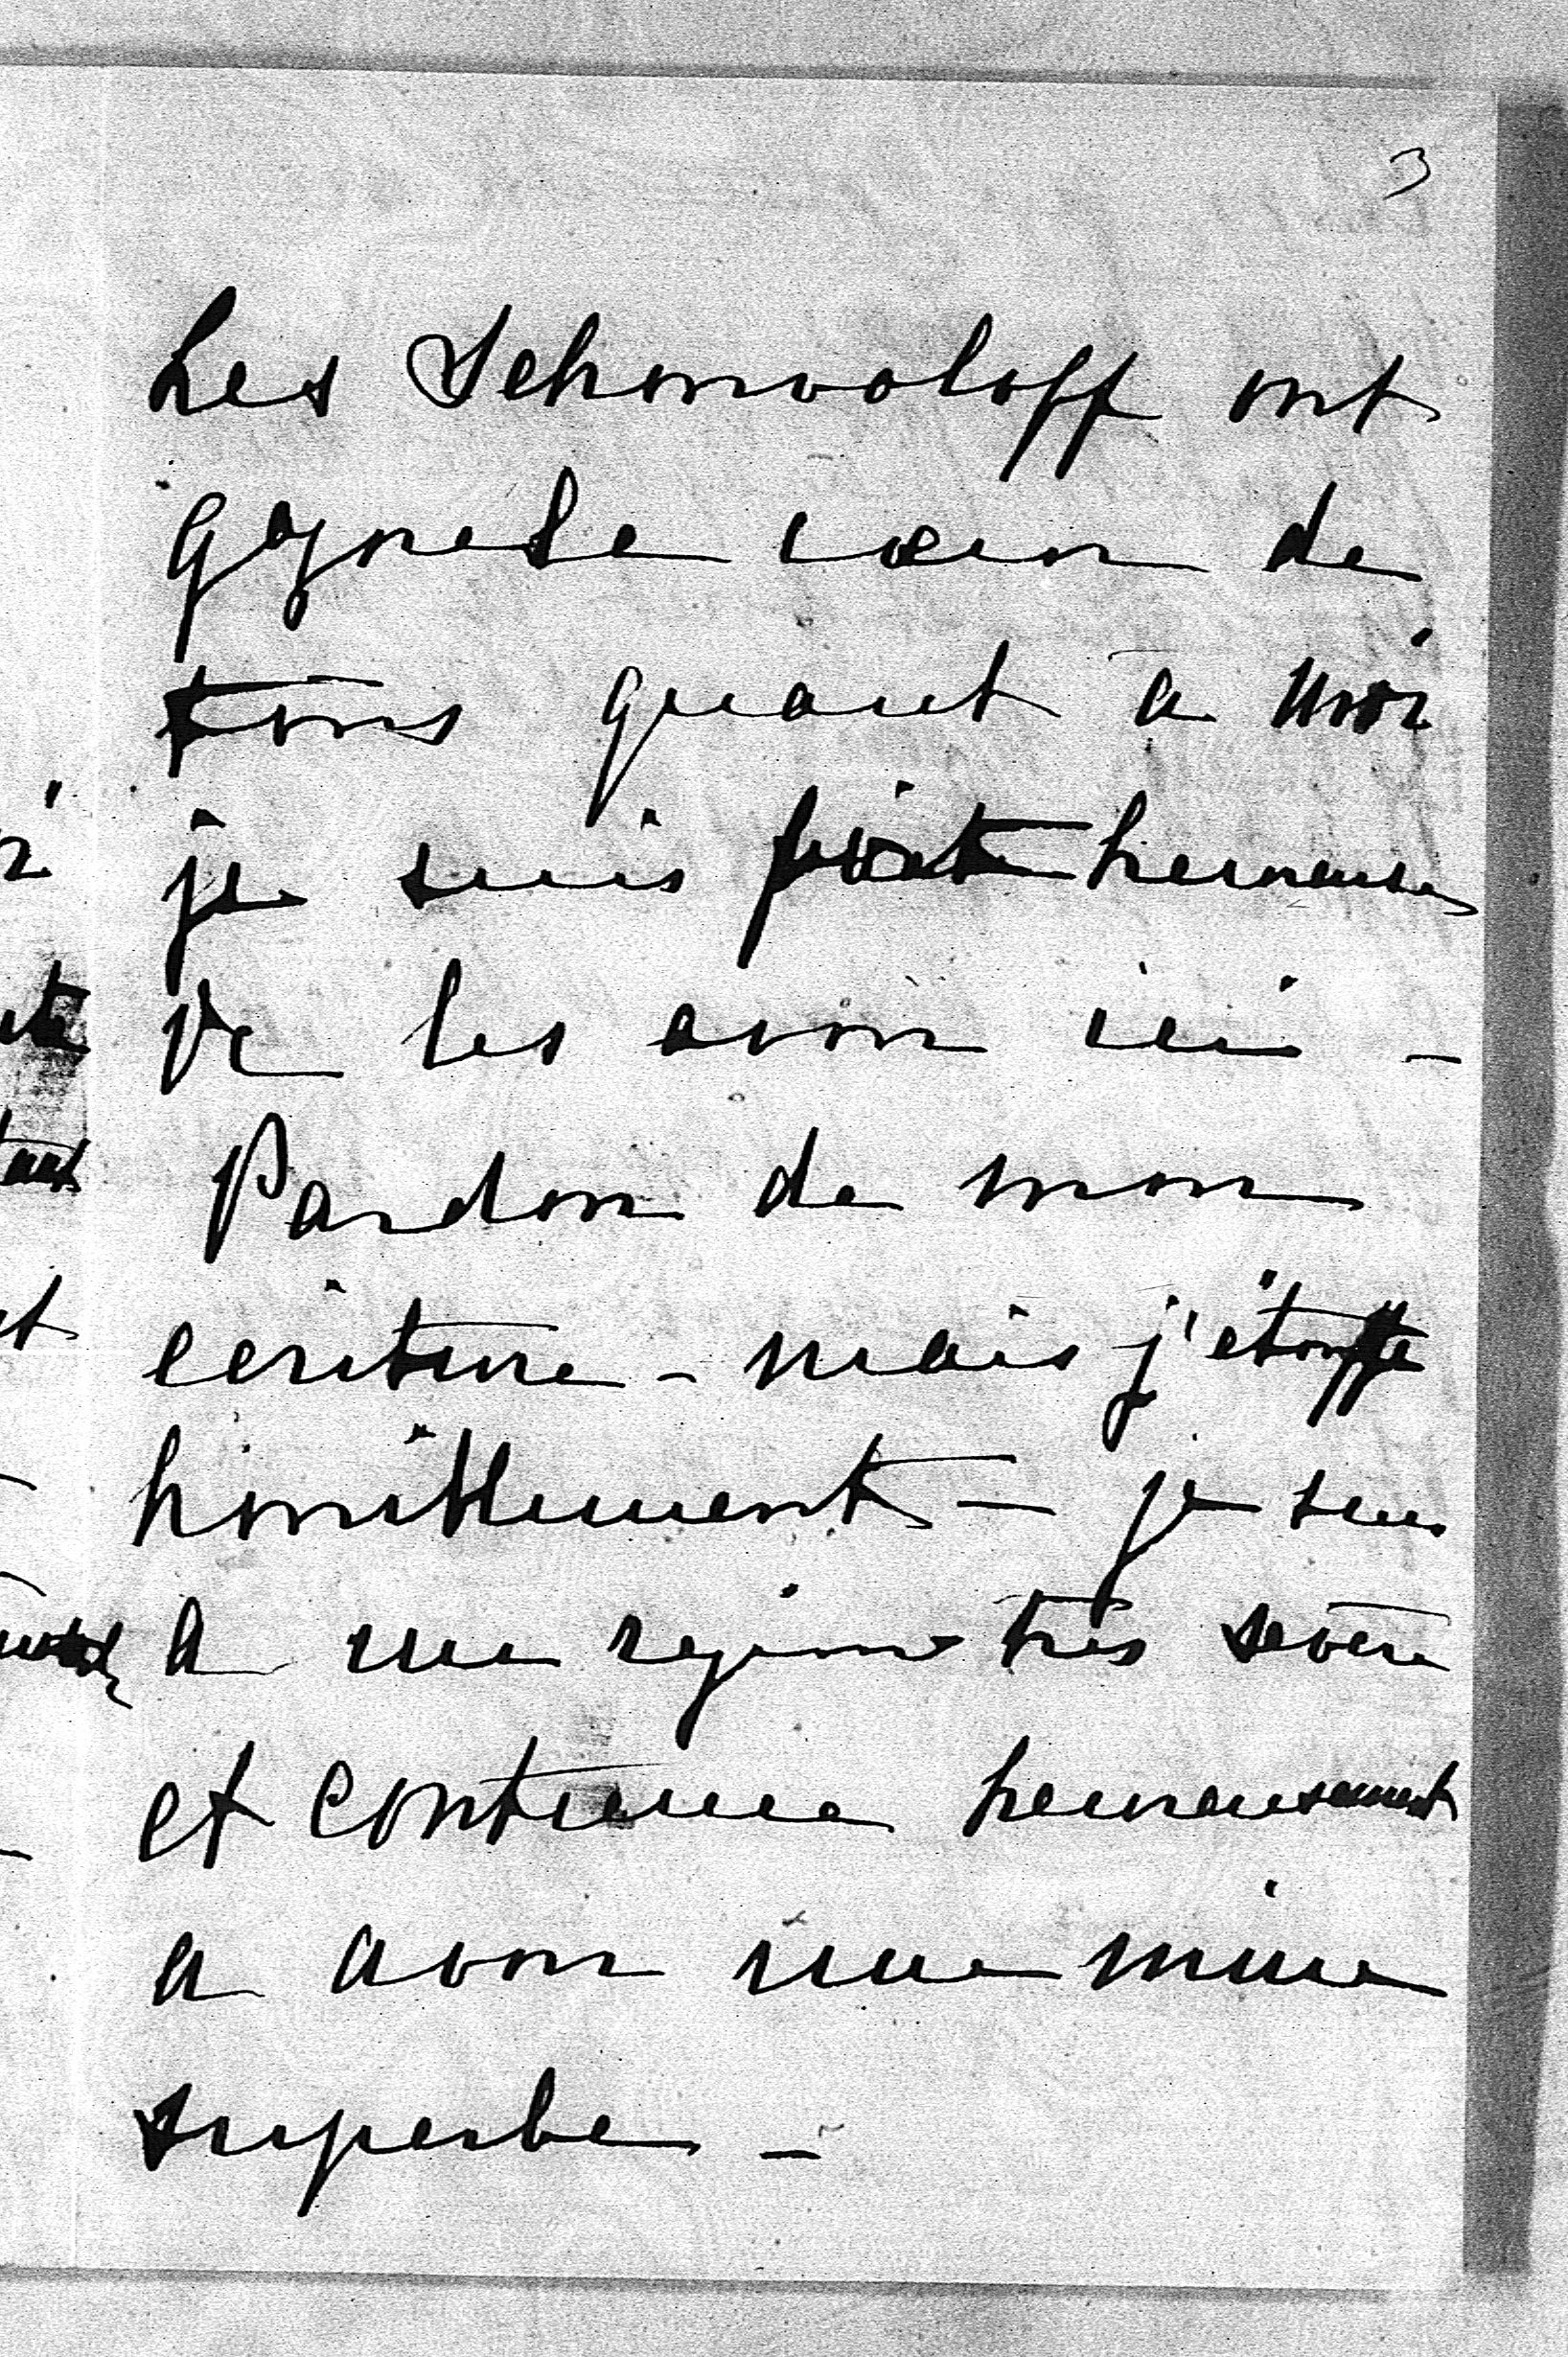 3
Les Schouvaloff ont
gagné le cœur de
tous quant a moi
je suis heureuse
de les avoir ici –
Pardon de mon
ecriture – mais j'étouffe
horriblement – je suis
a un regime très severe
et continue heureusement
a avoir une mine
superbe –